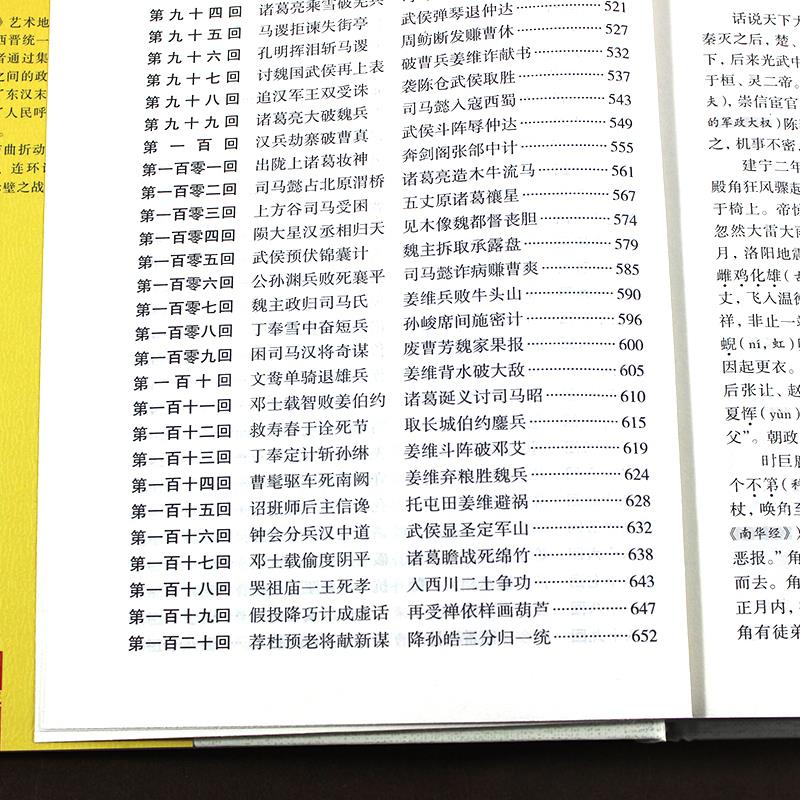 》艺术地
西晋统一
者通过集
之间的政
了东汉末
了人民呼
曲折动
、连环计
壁之战
第九十四回 诸葛亮乘雪破羌兵
第九十五回 马谡拒谏失街亭 武侯弹琴退仲达 521
第九十六回 孔明挥泪斩马谡 周鲂断发赚曹休 527
第九十七回 讨魏国武侯再上表 破曹兵姜维诈献书 532
第九十八回 追汉军王双受诛 袭陈仓武侯取胜 537
第九十九回 诸葛亮大破魏兵 司马懿入寇西蜀 543
第一百回 汉兵劫寨破曹真 武侯斗阵辱仲达 549
第一百零一回 出陇上诸葛妆神 奔剑阁张郃中计 555
第一百零二回 司马懿占北原渭桥 诸葛亮造木牛流马 561
第一百零三回 上方谷司马受困 五丈原诸葛禳星 567
第一百零四回 陨大星汉丞相归天 见木像魏都督丧胆 574
第一百零五回 武侯预伏锦囊计 魏主拆取承露盘 579
第一百零六回 公孙渊兵败死襄平 司马懿诈病赚曹爽 585
第一百零七回 魏主政归司马氏 姜维兵败牛头山 590
第一百零八回 丁奉雪中奋短兵 孙峻席间施密计 596
第一百零九回 困司马汉将奇谋 废曹芳魏家果报 600
第一百十回 文鸯单骑退雄兵 姜维背水破大敌 605
第一百十一回 邓士载智败姜伯约 诸葛诞义讨司马昭 610
第一百十二回 救寿春于诠死节 取长城伯约鏖兵 615
第一百十三回 丁奉定计斩孙綝 姜维斗阵破邓艾 619
第一百十四回 曹髦驱车死南阙 姜维弃粮胜魏兵 624
第一百十五回 诏班师后主信谗 托屯田姜维避祸 628
第一百十六回 钟会分兵汉中道 武侯显圣定军山 632
第一百十七回 邓士载偷度阴平 诸葛瞻战死绵竹 638
第一百十八回 哭祖庙一王死孝 入西川二士争功 643
第一百十九回 假投降巧计成虚话 再受禅依样画葫芦 647
第一百二十回 荐杜预老将献新谋 降孙皓三分归一统 652
话说天下大
秦灭之后，楚、
下，后来光武中
于桓、灵二帝。
夫），崇信宦官
的军政大权）陈
之，机事不密，
建宁二年
殿角狂风骤起
于椅上。帝惊
忽然大雷大雨
月，洛阳地震
雌鸡化雄（
丈，飞入温德
祥，非止一端
蜺（ní，虹）
因起更衣。
后张让、赵
夏恽（yùn）
父”。朝政
时巨鹿
个不第（
杖，唤角至
《南华经》）
恶报。”角
而去。角
正月内，
角有徒弟